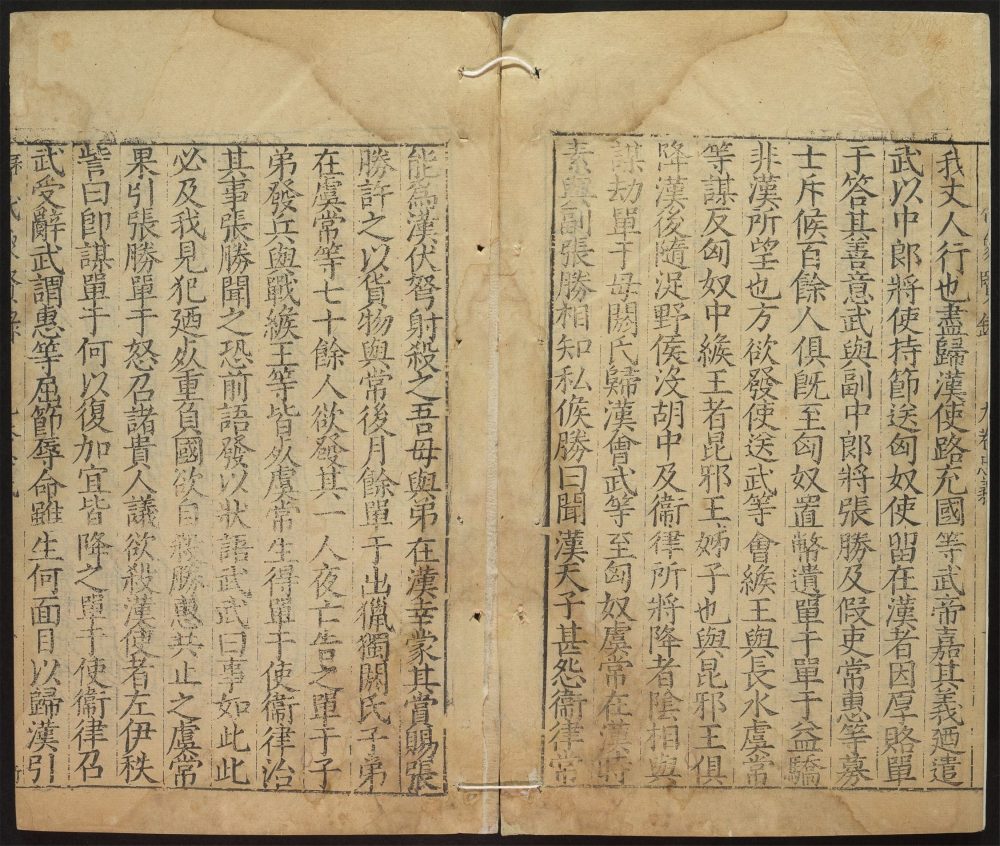 我丈人行也盡歸漢使路充國等武帝嘉其義廼遣
武以中郎將使持節送匈奴使留在漢者因厚賂單
于答其善意武與副中郎將張勝及假吏常惠等募
士斥候百餘人俱旣至匈奴置幣遺單于單于益驕
非漢所望也方欲發使送武等會緱王與長水虞常
等謀反匈奴中緱王者昆邪王姊子也與昆邪王俱
降漢後隨浞野侯沒胡中及衞律所將降者陰相與
謀劫單于母閼氏歸漢會武等至匈奴虞常在漢時
素與副張勝相知私候勝曰聞漢天子甚怨衞律常
能爲漢伏弩射殺之吾母與弟在漢幸蒙其賞賜張
勝許之以貨物與常後月餘單于出獵獨閼氏子弟
在虞常等七十餘人欲發其一人夜亡告之單于子
弟發兵與戰緱王等皆死虞常生得單于使衞律治
其事張勝聞之恐前語發以狀語武武曰事如此此
必及我見犯廼死重負國欲自殺勝惠共止之虞常
果引張勝單于怒召諸貴人議欲殺漢使者左伊秩
訾曰卽謀單于何以復加宜皆降之單于使衞律召
武受辭武謂惠等屈節辱命雖生何面目以歸漢引